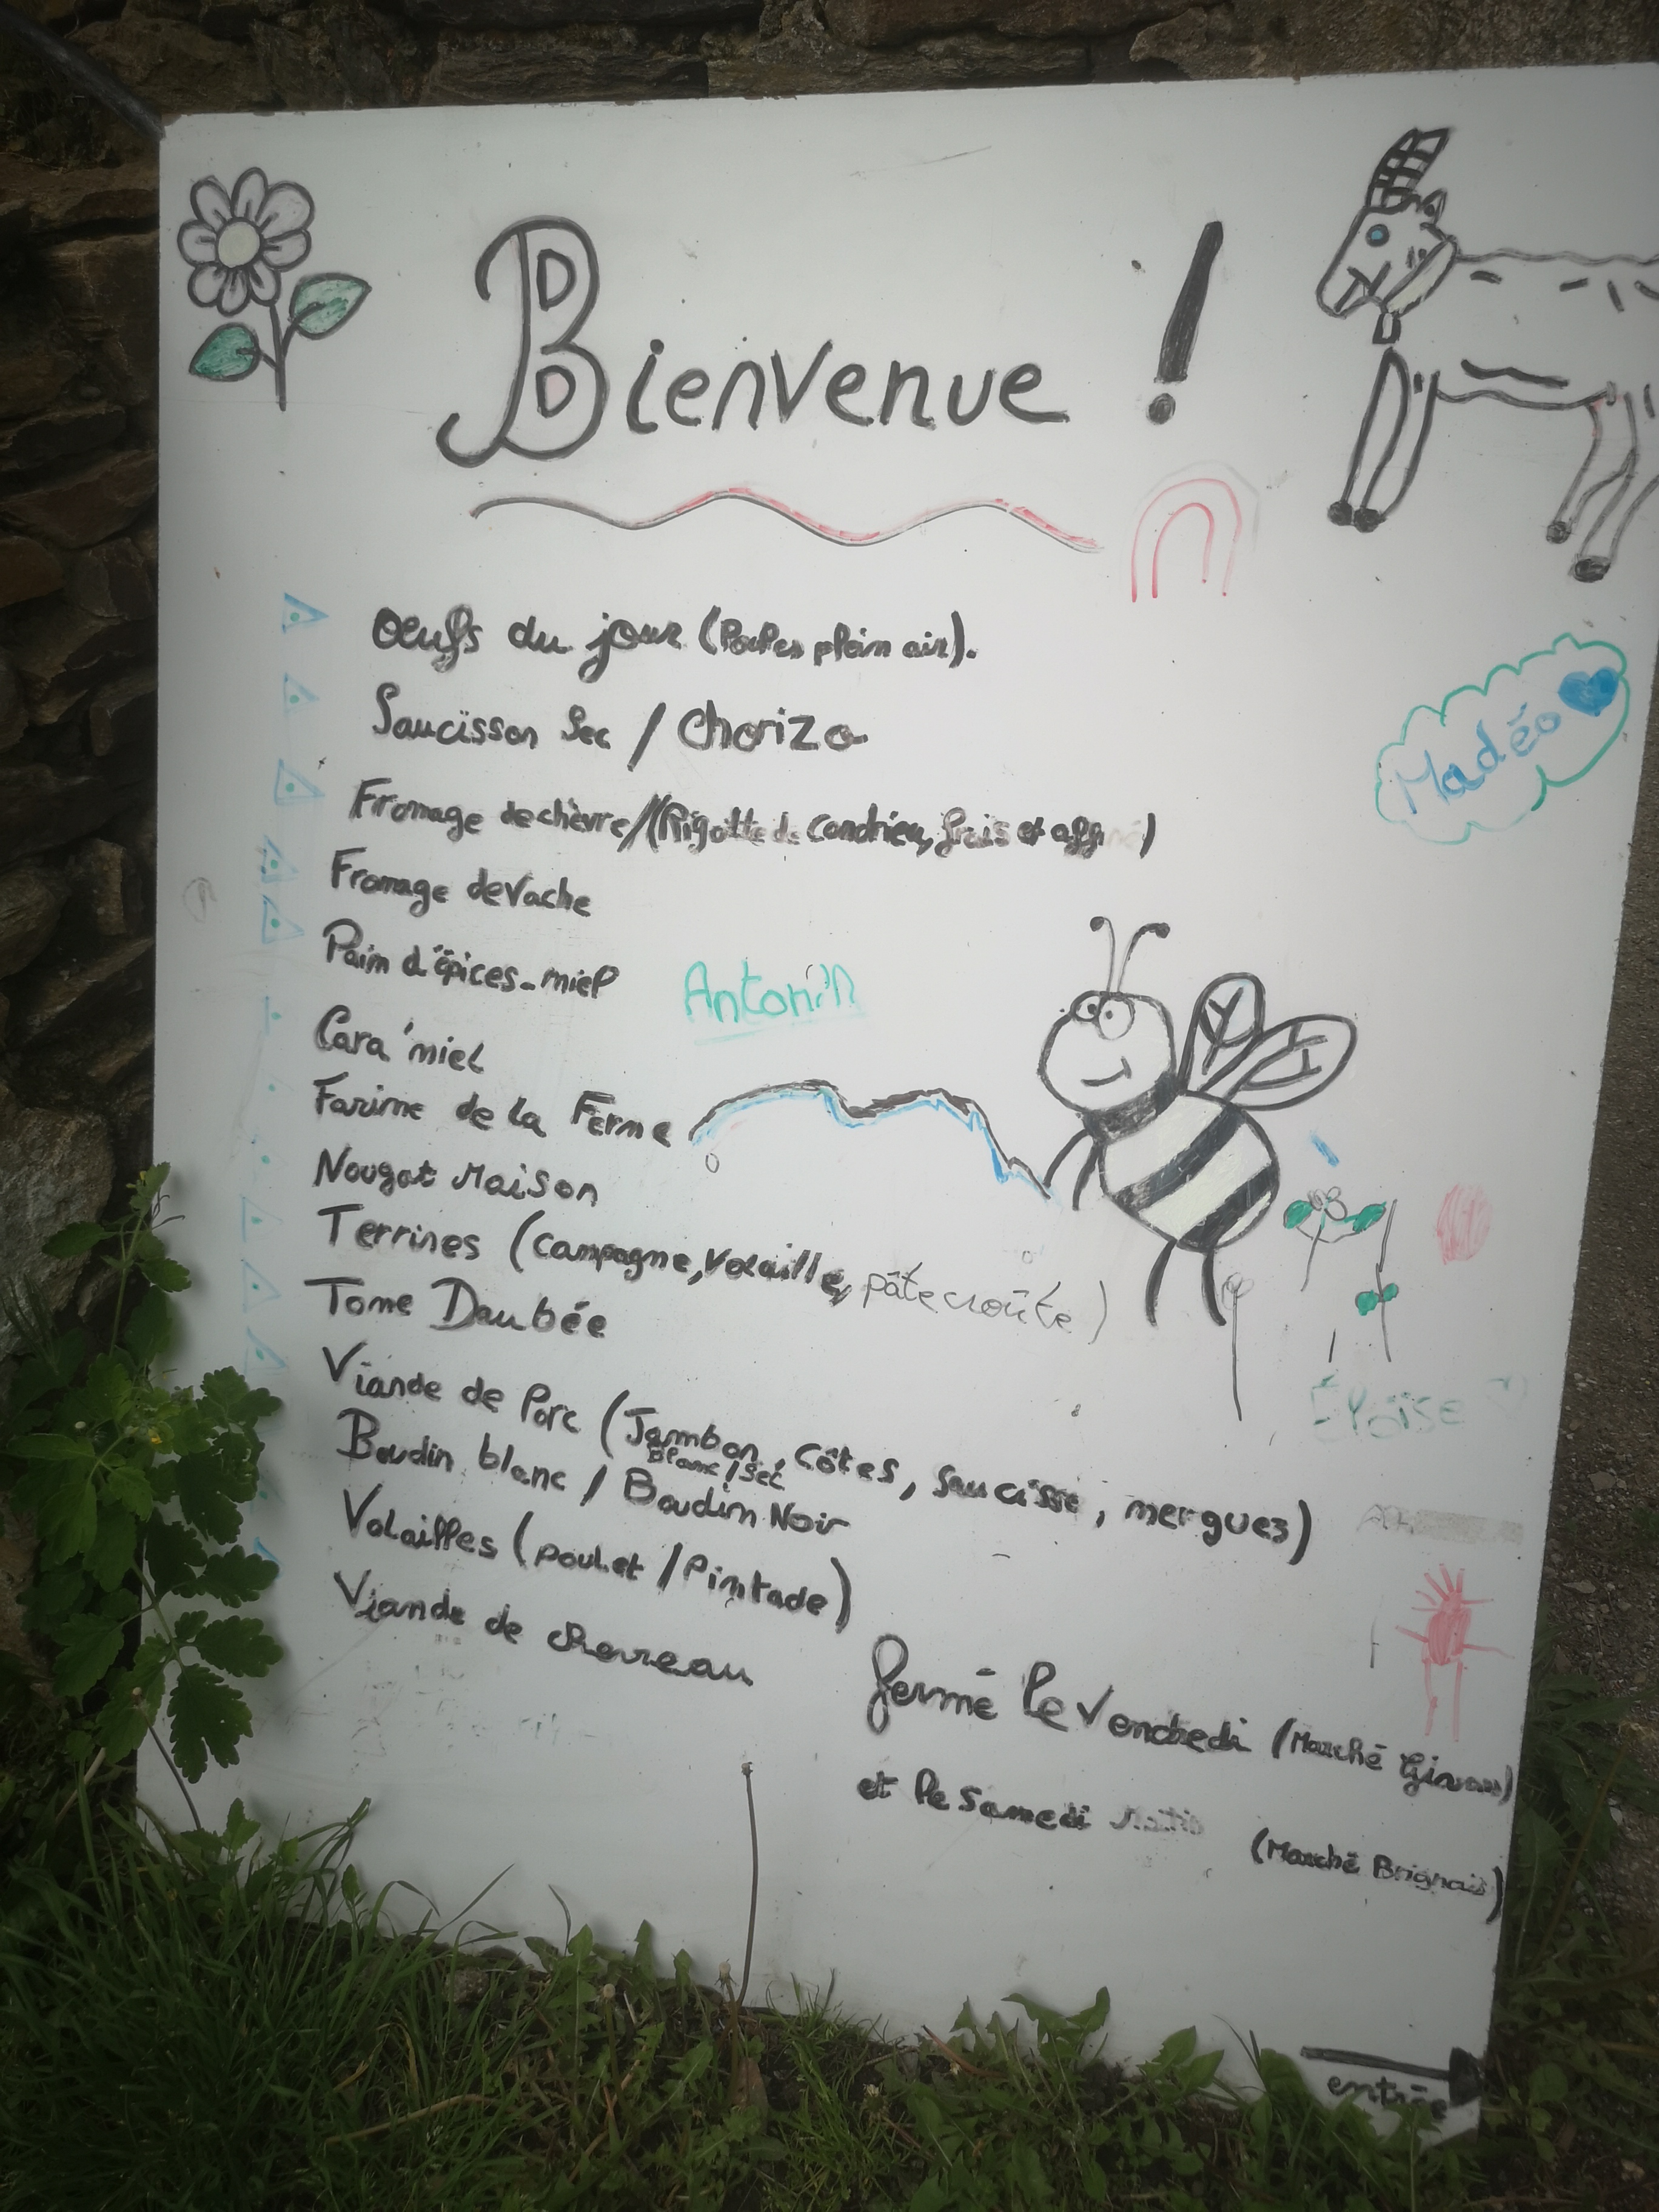 Bienvenue !
Oeufs du jour (Poules plein air).
Saucisson Sec / Chorizo
Fromage de chèvre/(Rigotte de Condrieu, frais et aff )
Fromage de Vache
Madéo
Pain d'épices - miel
Antonin
Cara'miel
Farine de la Ferme
Nougat Maison
Terrines (Campagne, Volaille, pâte croûte)
Tome Daubée
Éloïse
Viande de Porc (Jambon, Côtes, Saucisse, merguez)
Blanc / Sec
Boudin blanc / Boudin Noir
Volailles (poulet / Pintade)
Viande de chevreau
fermé le Vendredi (Marché Givors)
et le Samedi Matin (Marché Brignais)
entrée